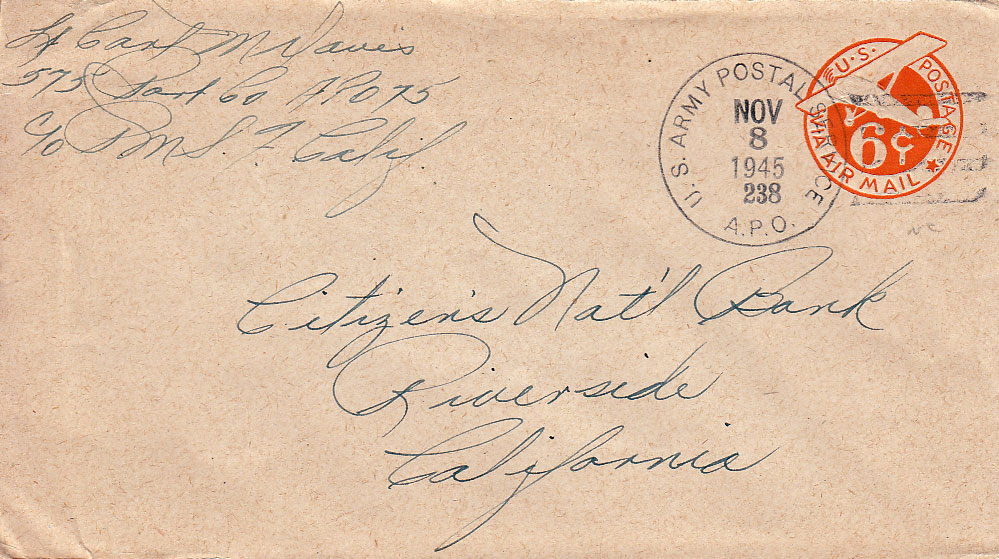 Lt Carl M Davis
575 Port Co APO 75
C/O PM S F Calif
U.S. ARMY POSTAL SERVICE
NOV
8
1945
238
A.P.O.
U.S. POSTAGE
6¢
VIA AIR MAIL
NC
Citizen's Nat'l Bank
Riverside
California